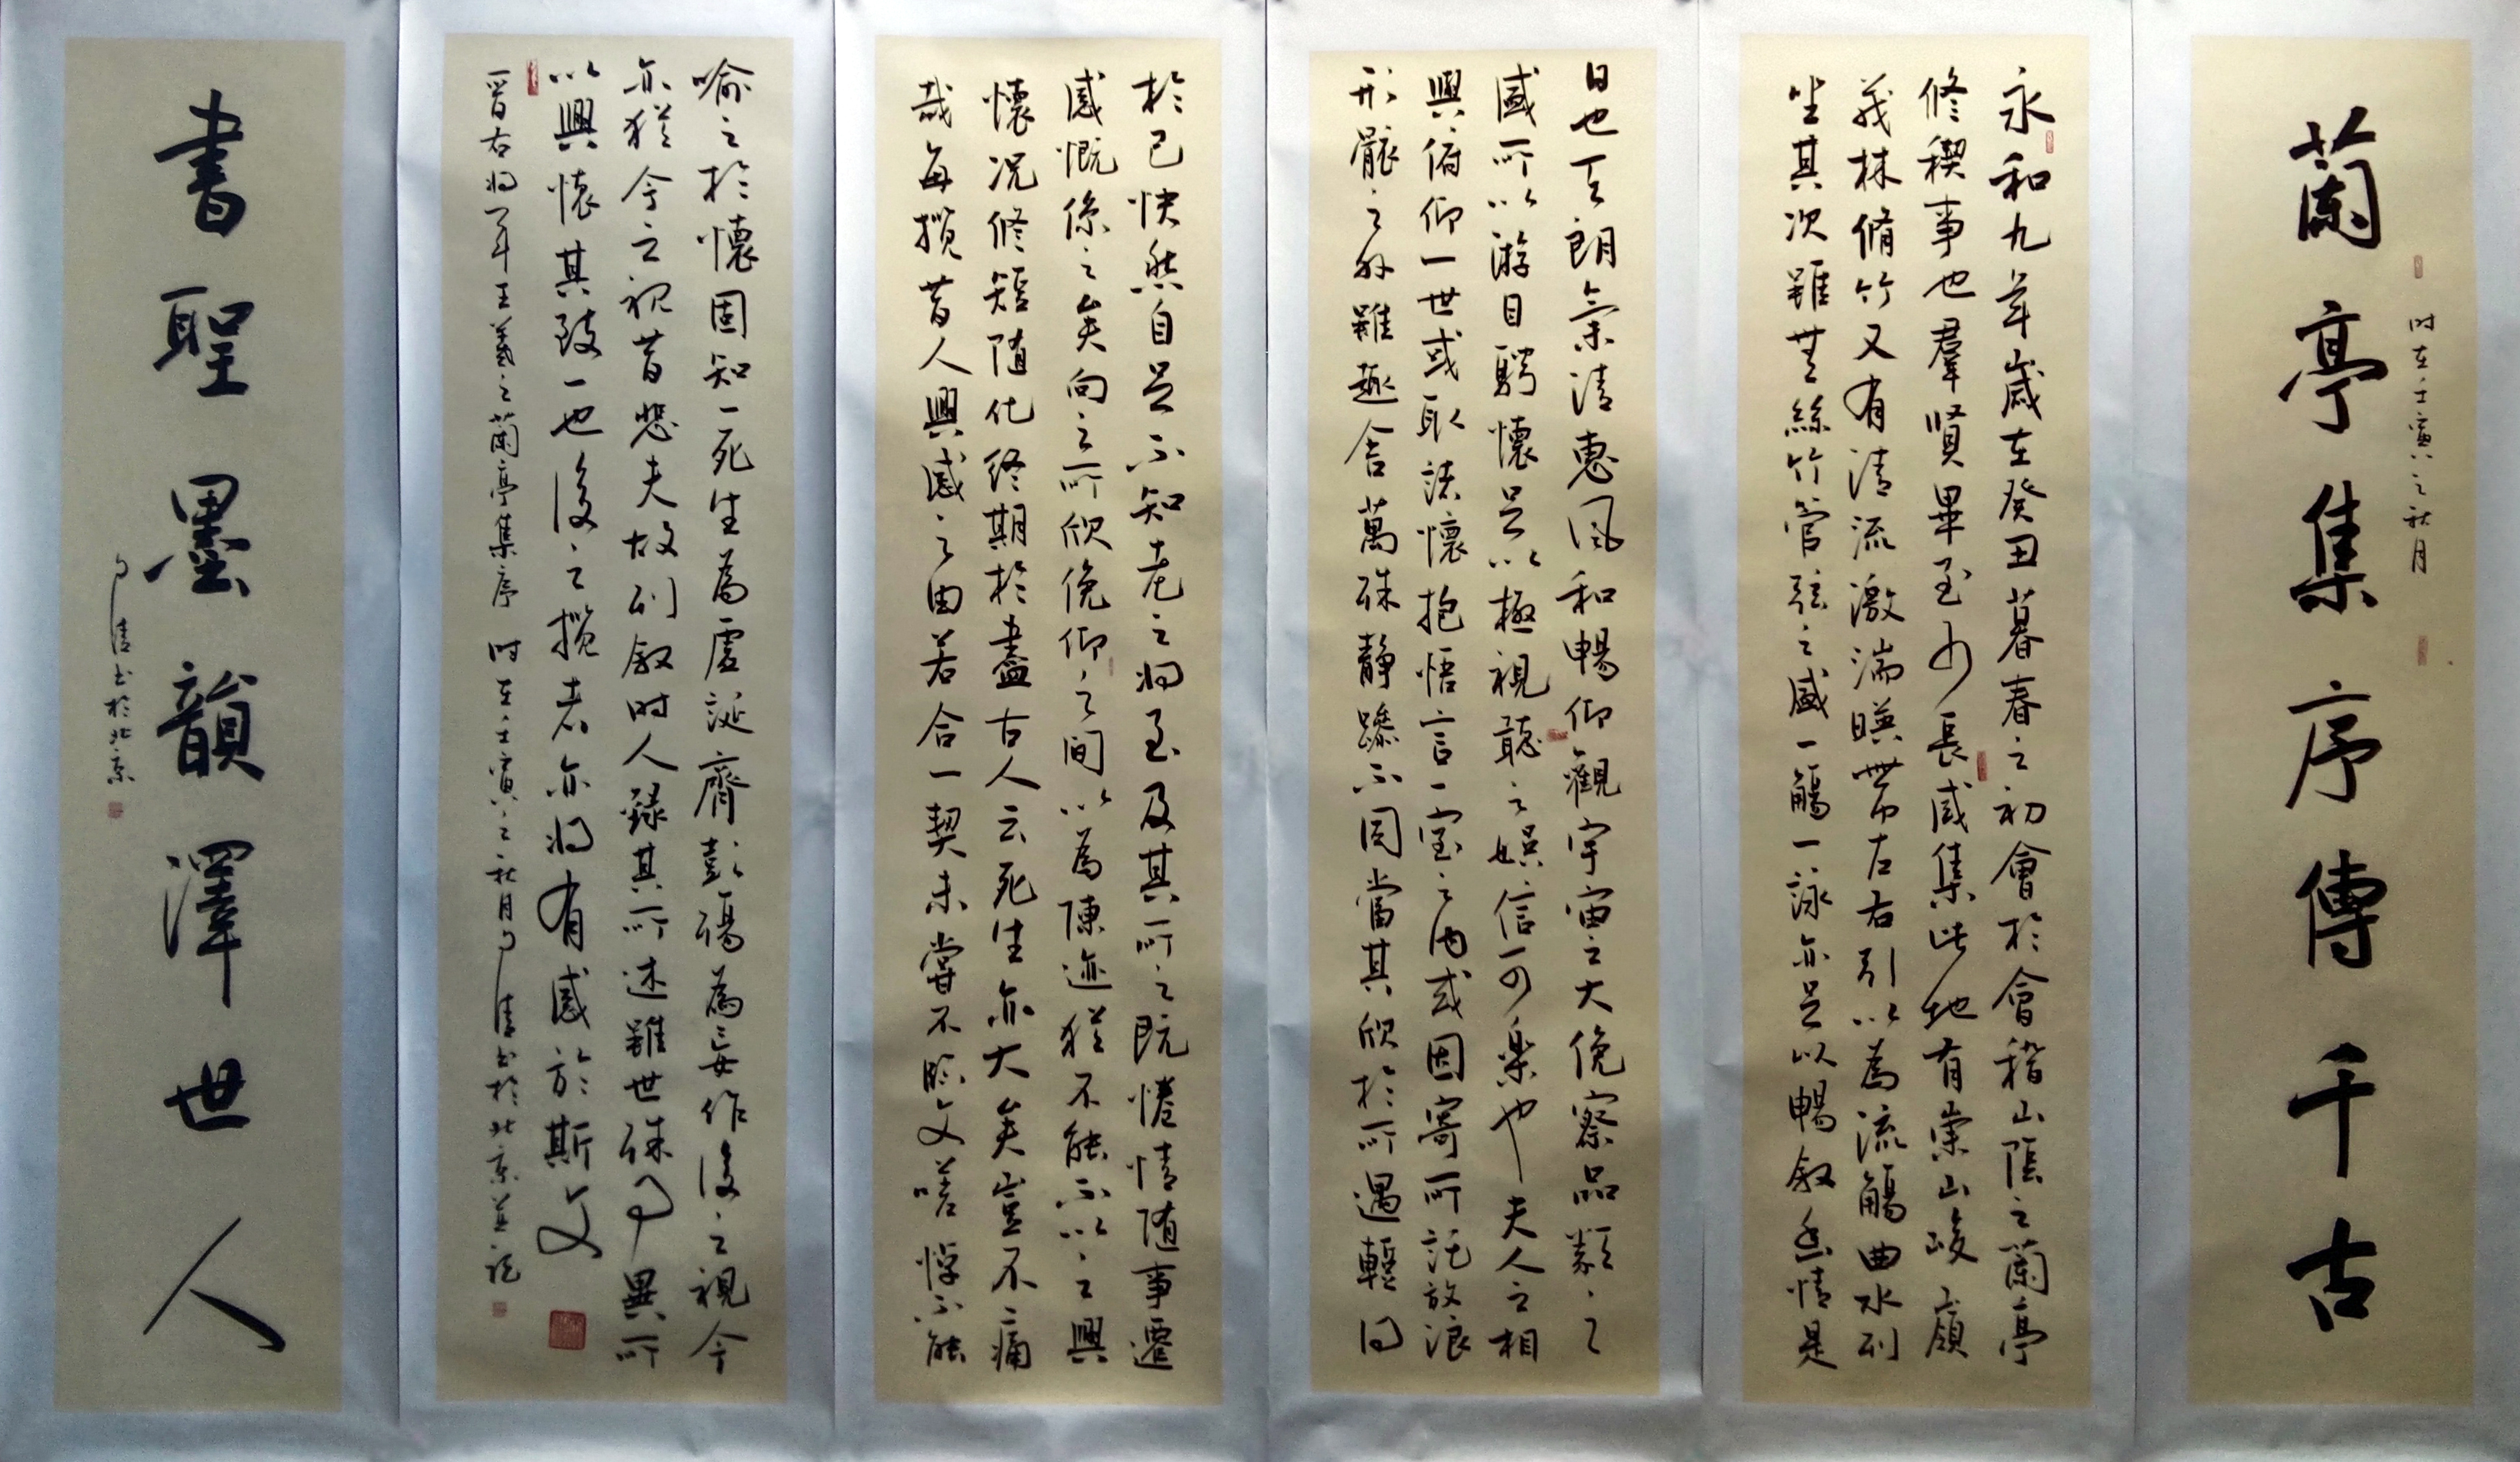 时在壬寅之秋月
蘭亭集序傳千古
永和九年歲在癸丑暮春之初會於會稽山陰之蘭亭
修稧事也羣賢畢至少長咸集此地有崇山峻嶺
茂林脩竹又有清流激湍暎帶左右引以為流觴曲水列
坐其次雖無絲竹管弦之盛一觴一詠亦足以暢叙幽情是
日也天朗氣清惠風和暢仰觀宇宙之大俛察品類之
盛所以游目騁懷足以極視聽之娛信可樂也夫人之相
與俯仰一世或取諸懷抱悟言一室之內或因寄所託放浪
形骸之外雖趣舍萬殊靜躁不同當其欣於所遇蹔得
於己快然自足不知老之將至及其所之既惓情隨事遷
感慨係之矣向之所欣俛仰之間以為陳迹猶不能不以之興
懷況修短隨化終期於盡古人云死生亦大矣豈不痛
哉每攬昔人興感之由若合一契未嘗不臨文嗟悼不能
喻之於懷固知一死生為虛誕齊彭殤為妄作後之視今
亦猶今之視昔悲夫故列叙時人錄其所述雖世殊事異所
以興懷其致一也後之攬者亦將有感於斯文
晉右將軍王羲之蘭亭集序 时在壬寅之秋月清书於北京並記
書聖墨韻澤世人
清书於北京